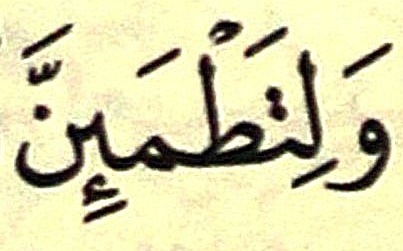 وَلِتَطْمَئِنَّ